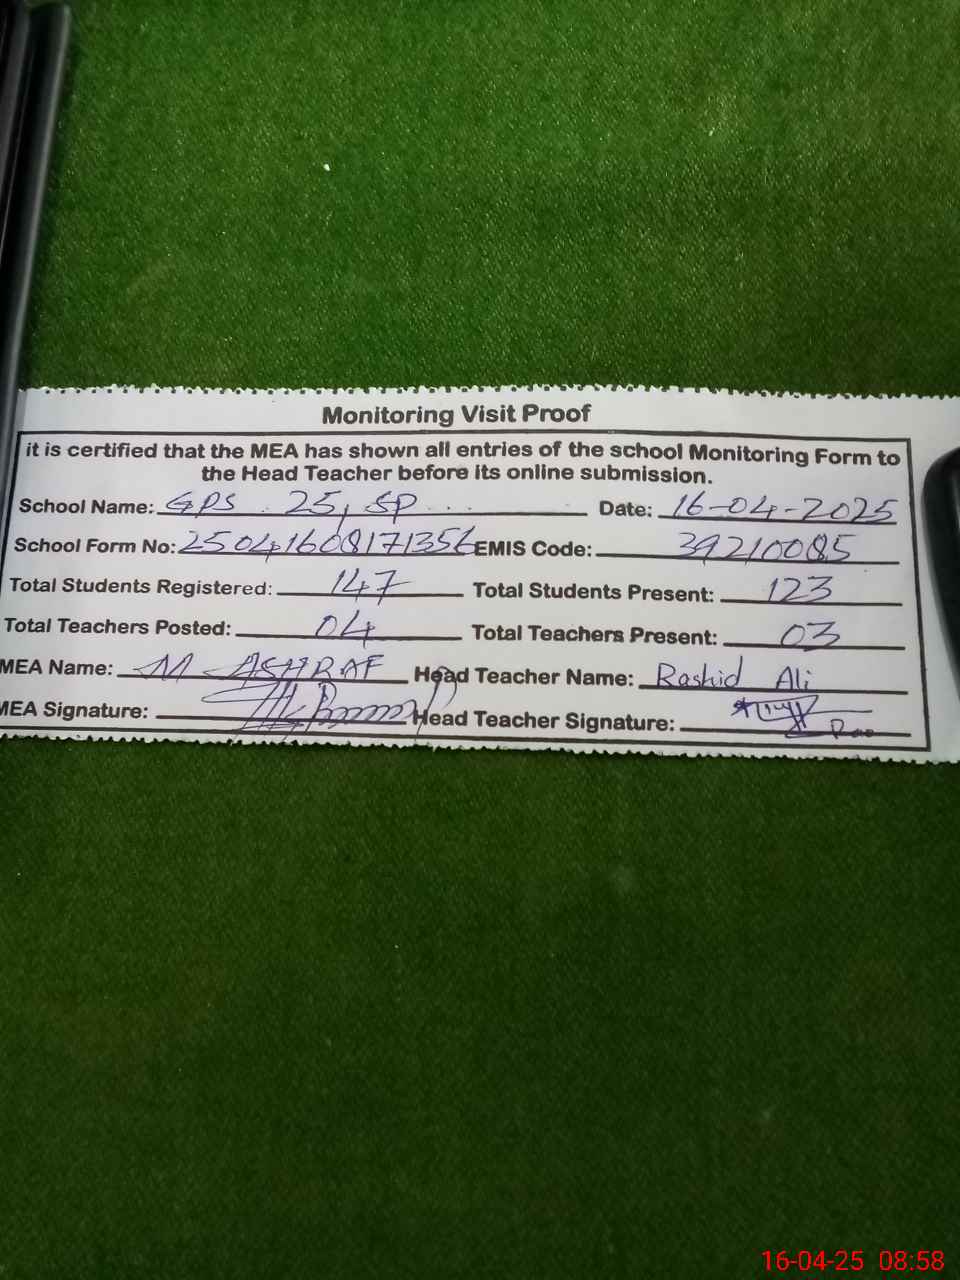 Monitoring Visit Proof
it is certified that the MEA has shown all entries of the school Monitoring Form to
the Head Teacher before its online submission.
School Name: GPS 25, SP ... Date: 16-04-2025
School Form No: 25041608171356 EMIS Code: 39210085
Total Students Registered: 147 Total Students Present: 123
Total Teachers Posted: 04 Total Teachers Present: 03
MEA Name: M ASHRAF Head Teacher Name: Rashid Ali
MEA Signature: Head Teacher Signature:
16-04-25 08:58